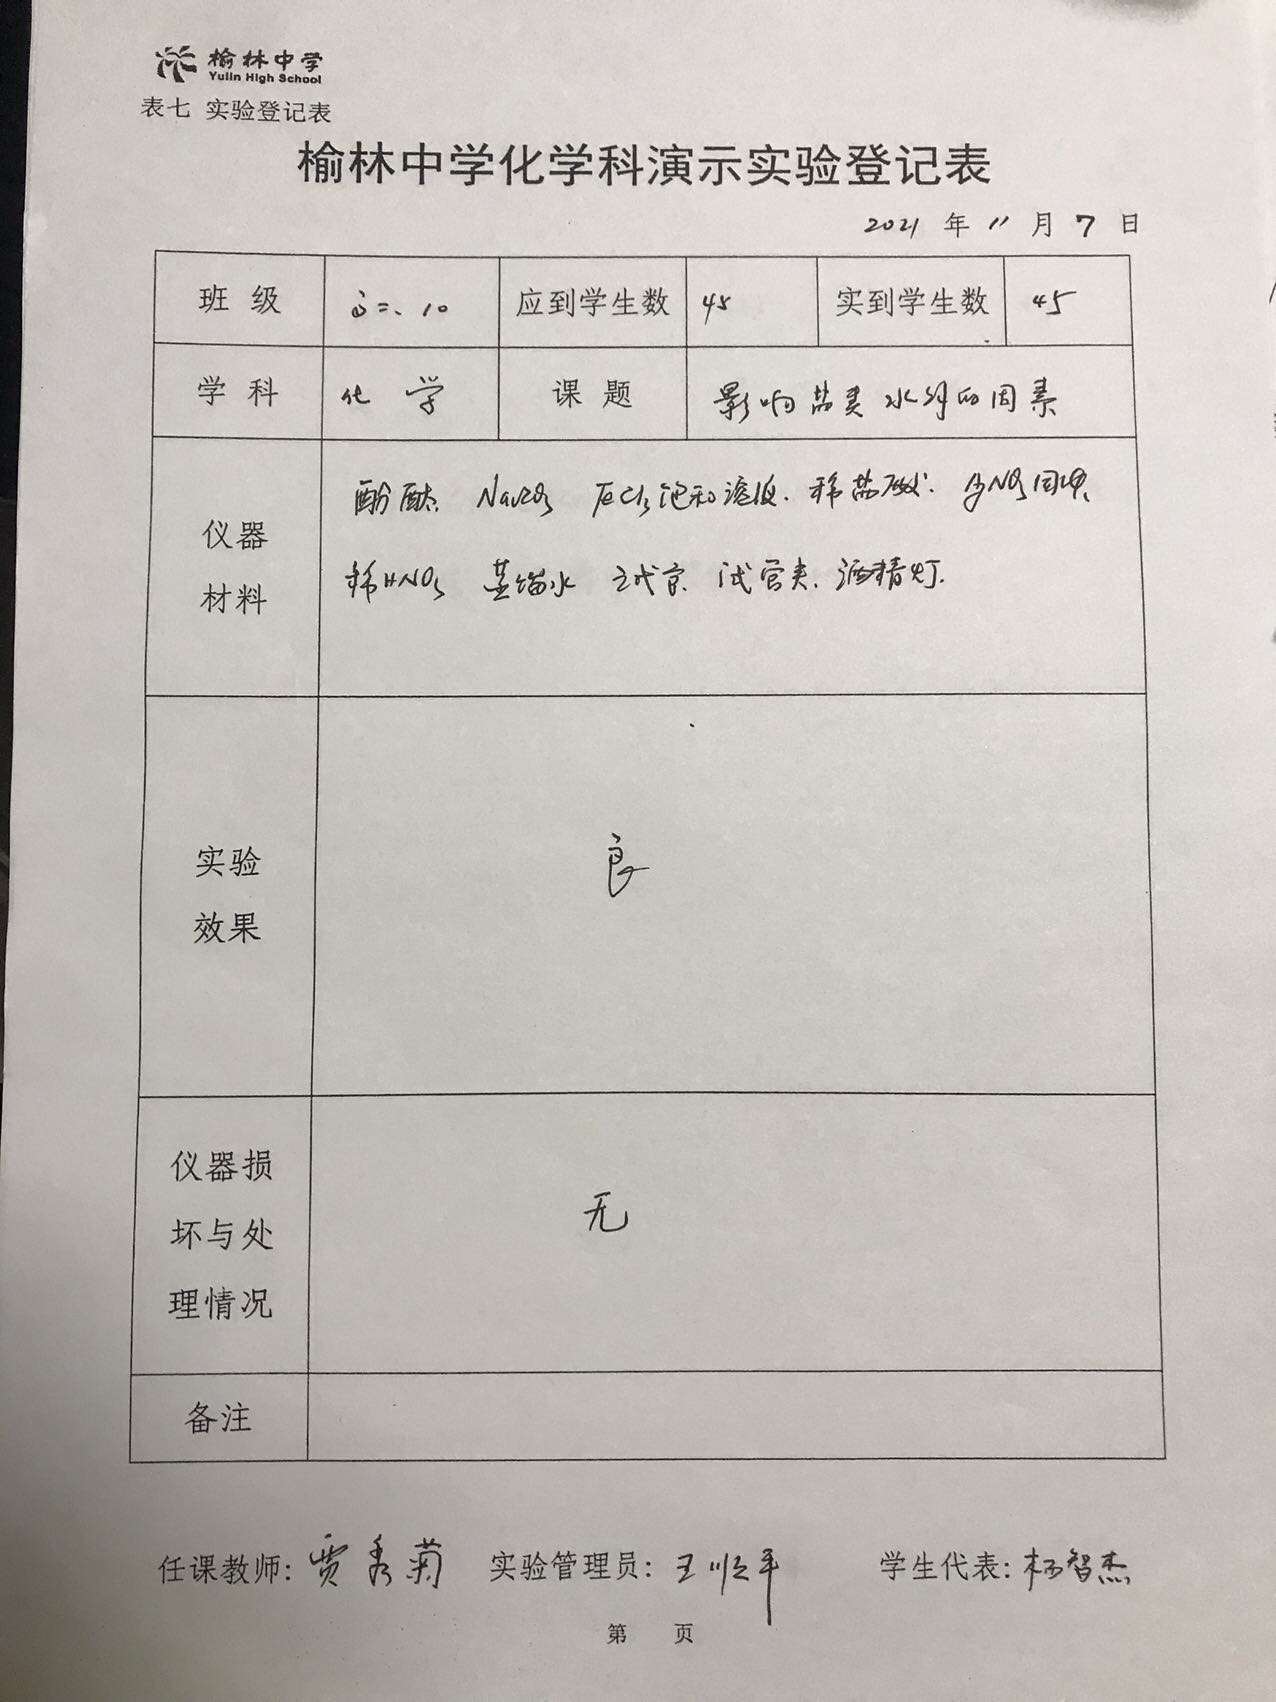 榆林中学
Yulin High School
表七 实验登记表
榆林中学化学科演示实验登记表
2021 年 11 月 7 日
班 级 高二、10 应到学生数 45 实到学生数 45
学 科 化 学 课 题 影响盐类水解的因素
仪器
材料
酚酞 Na2CO3 FeCl3饱和溶液. 稀盐酸. 固体、
稀HNO3 蒸馏水 试管 试管夹. 酒精灯.
实验
效果
良
仪器损
坏与处
理情况
无
备注
任课教师: 贾秀菊 实验管理员: 王顺平 学生代表: 杨智杰
第 页